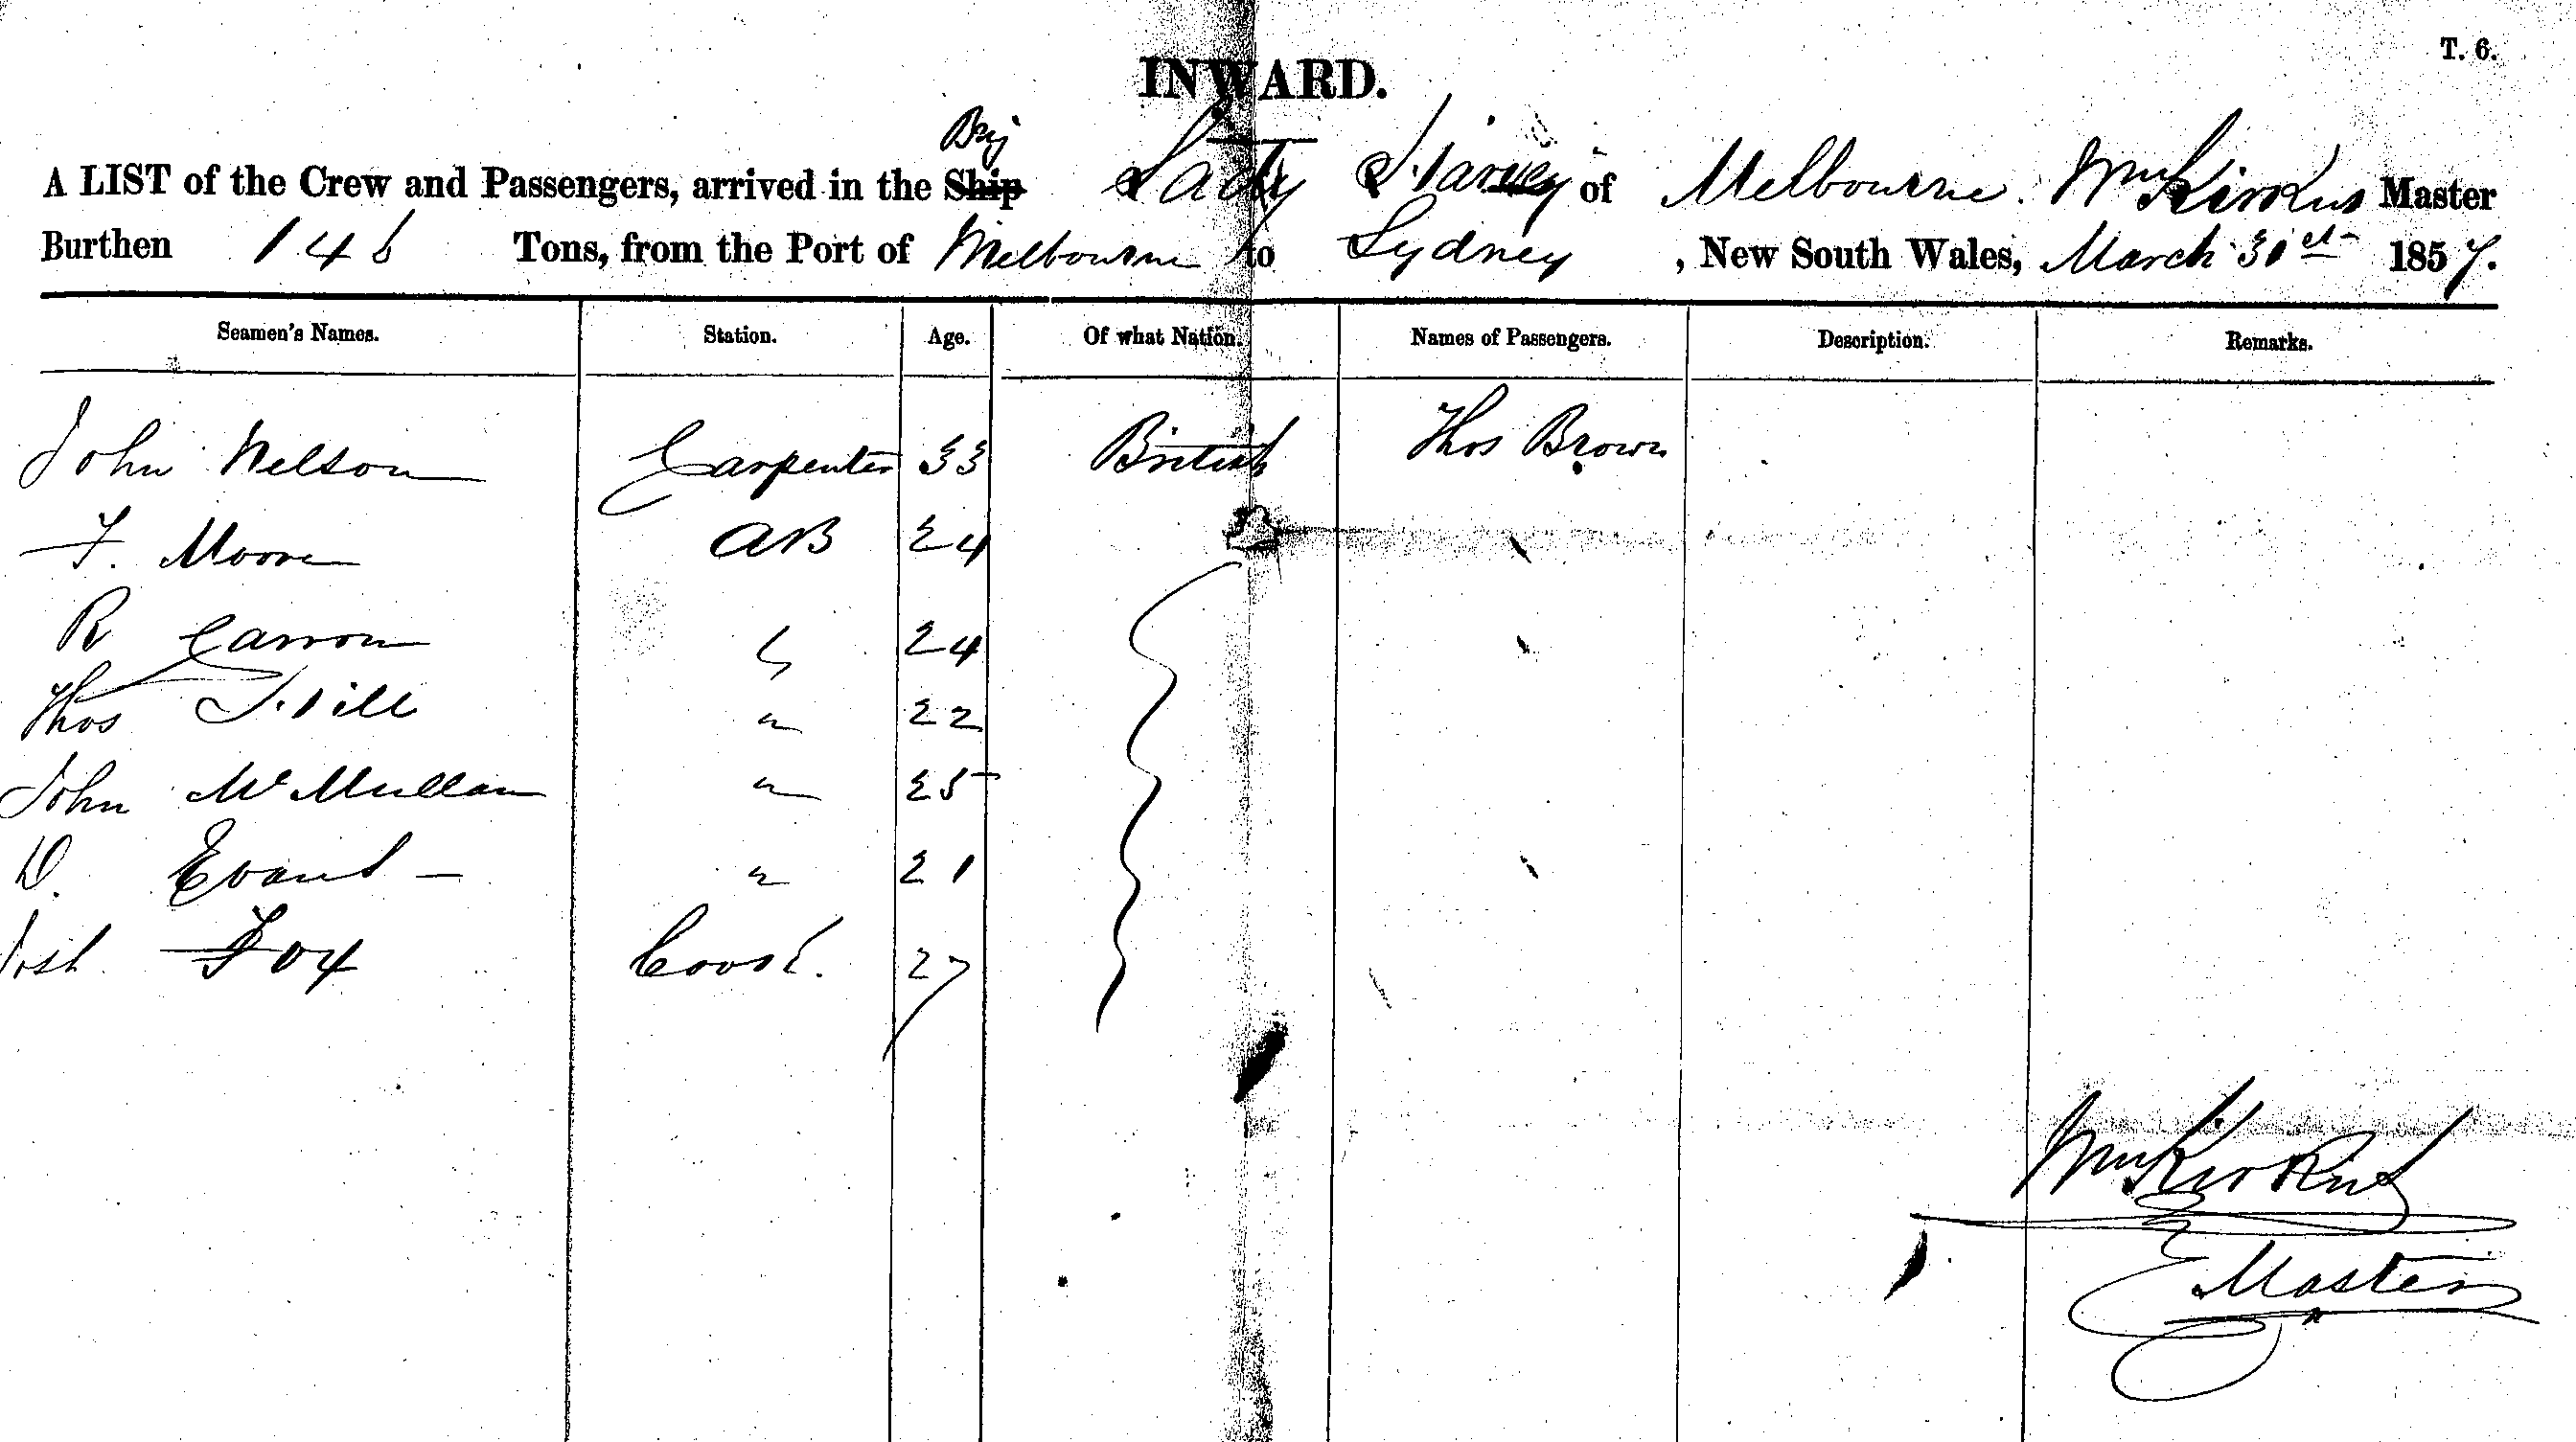 T. 6.
INWARD.
Brig
A LIST of the Crew and Passengers, arrived in the Ship Lady Harvey of Melbourne. Wm Kirkus Master
Burthen 146 Tons, from the Port of Melbourne to Sydney , New South Wales, March 31st 1857.
Seamen's Names. Station. Age. Of what Nation. Names of Passengers. Description. Remarks.
John Nelson Carpenter 33 British Thos Brown
F. Moore AB 24
R Carron " 24
Thos Hill " 22
John McMullan " 25
D. Evans - " 21
Josh Fox Cook. 27
Wm Kirkus
Master